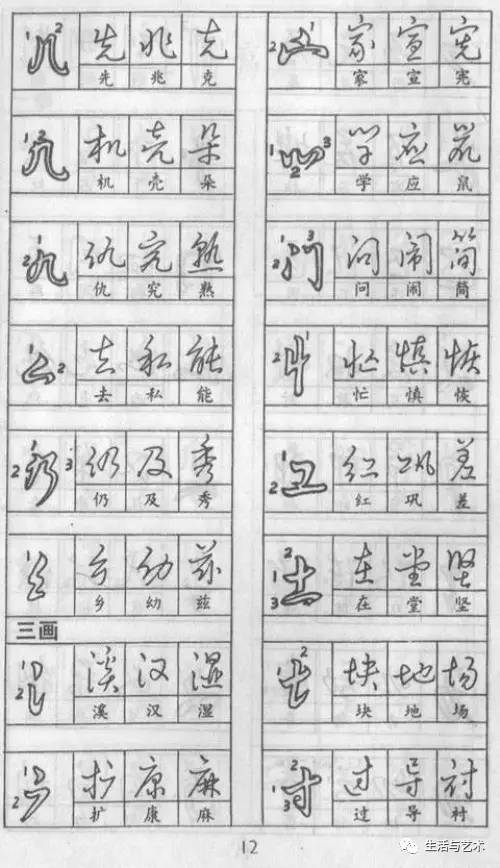 先 兆 克
先 兆 克
机 壳 朵
机 壳 朵
仇 究 熟
仇 究 熟
去 私 能
去 私 能
仍 及 秀
仍 及 秀
乡 幼 兹
乡 幼 兹
三画
溪 汉 湿
溪 汉 湿
扩 康 麻
扩 康 麻
家 宣 宪
家 宣 宪
学 应 鼠
学 应 鼠
问 闹 简
问 闹 简
忙 慎 恢
忙 慎 恢
红 巩 差
红 巩 差
在 堂 坚
在 堂 坚
块 地 场
块 地 场
过 导 衬
过 导 衬
12
生活与艺术